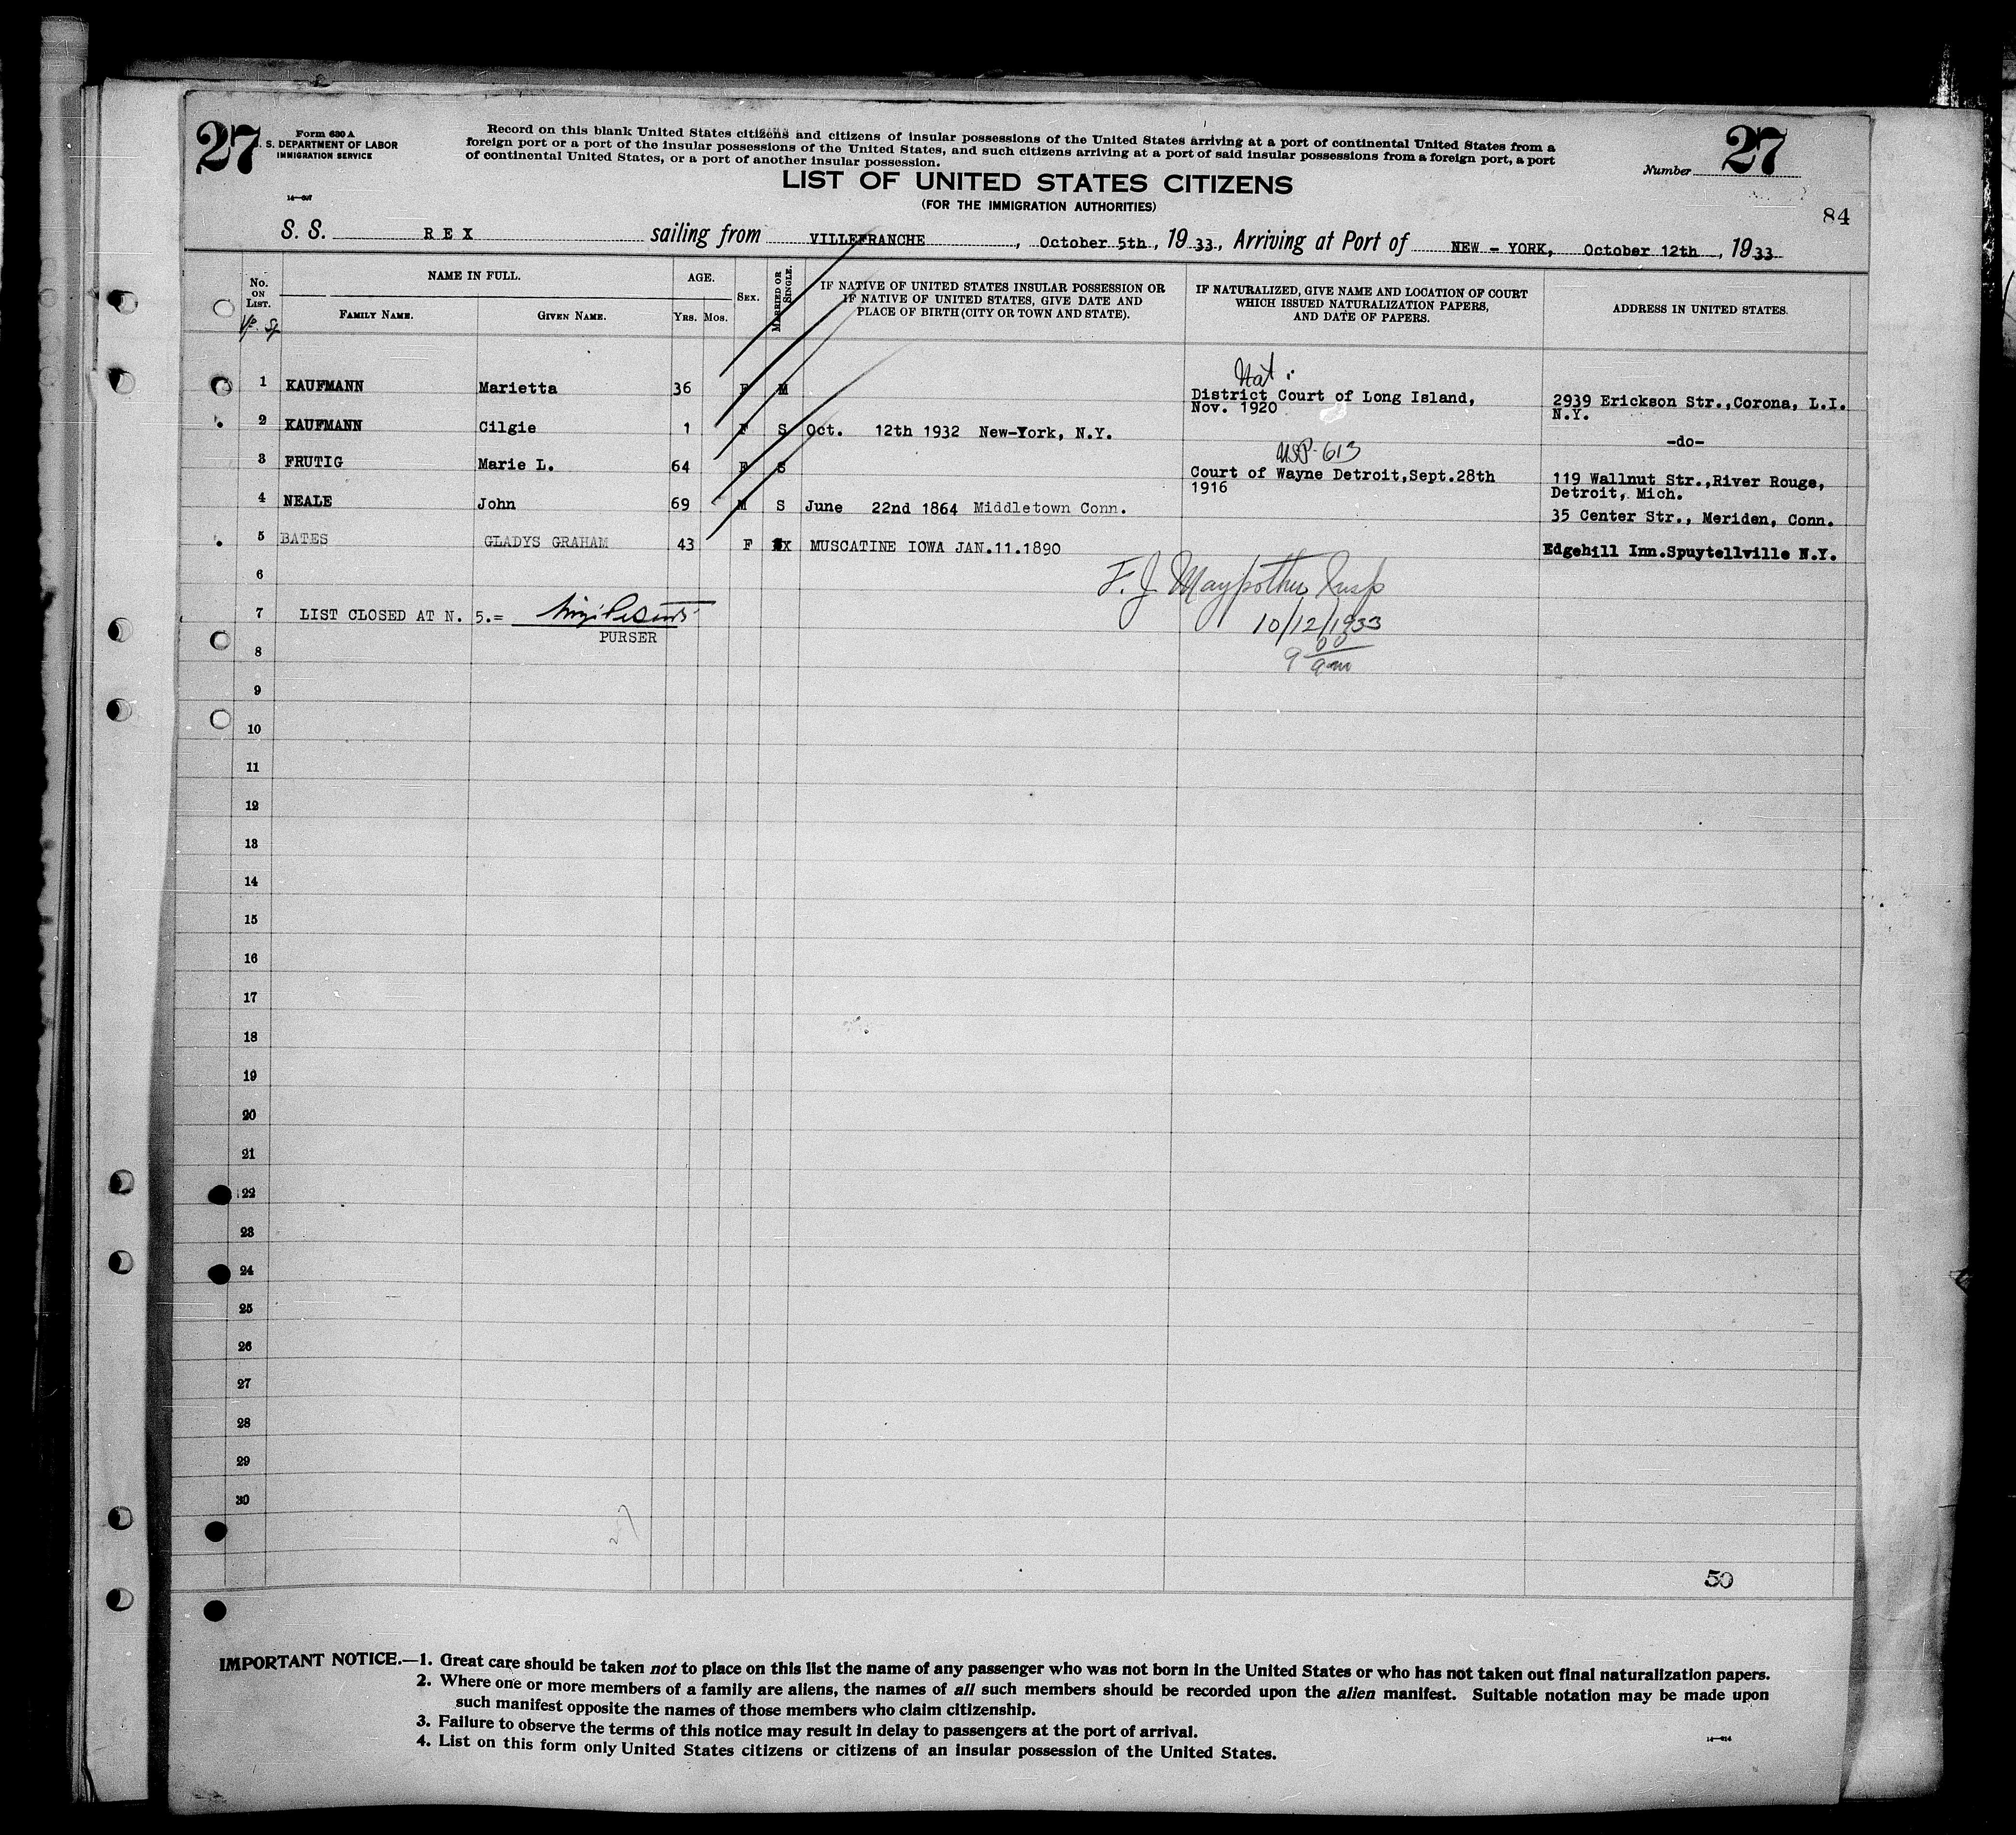 27
Form 630 A
S. DEPARTMENT OF LABOR
IMMIGRATION SERVICE
Record on this blank United States citizens and citizens of insular possessions of the United States arriving at a port of continental United States from a
foreign port or a port of the insular possessions of the United States, and such citizens arriving at a port of said insular possessions from a foreign port, a port
of continental United States, or a port of another insular possession.
Number 27
LIST OF UNITED STATES CITIZENS
(FOR THE IMMIGRATION AUTHORITIES)
84
S. S. REX sailing from VILLEFRANCHE, October 5th, 1933, Arriving at Port of NEW - YORK, October 12th, 1933
No. ON LIST.
NAME IN FULL.
FAMILY NAME. GIVEN NAME.
AGE.
YRS. MOS.
SEX.
MARRIED OR SINGLE.
IF NATIVE OF UNITED STATES INSULAR POSSESSION OR
IF NATIVE OF UNITED STATES, GIVE DATE AND
PLACE OF BIRTH (CITY OR TOWN AND STATE).
IF NATURALIZED, GIVE NAME AND LOCATION OF COURT
WHICH ISSUED NATURALIZATION PAPERS,
AND DATE OF PAPERS.
ADDRESS IN UNITED STATES.
Nat:
1 KAUFMANN Marietta 36 F M District Court of Long Island, 2939 Erickson Str.,Corona, L.I.
Nov. 1920 N.Y.
2 KAUFMANN Cilgie 1 F S Oct. 12th 1932 New-York, N.Y. -do-
USP-613
3 FRUTIG Marie L. 64 F S Court of Wayne Detroit,Sept.28th 119 Wallnut Str.,River Rouge,
1916 Detroit, Mich.
4 NEALE John 69 M S June 22nd 1864 Middletown Conn. 35 Center Str., Meriden, Conn.
5 BATES GLADYS GRAHAM 43 F X MUSCATINE IOWA JAN.11.1890 Edgehill Inn.Spuytellville N.Y.
6
F. J. Maypother Insp
7 LIST CLOSED AT N. 5.=
10/12/1933
PURSER
8
9 00 am
9
10
11
12
13
14
15
16
17
18
19
20
21
22
23
24
25
26
27
28
29
30
27
50
IMPORTANT NOTICE.—1. Great care should be taken not to place on this list the name of any passenger who was not born in the United States or who has not taken out final naturalization papers.
2. Where one or more members of a family are aliens, the names of all such members should be recorded upon the alien manifest. Suitable notation may be made upon
such manifest opposite the names of those members who claim citizenship.
3. Failure to observe the terms of this notice may result in delay to passengers at the port of arrival.
4. List on this form only United States citizens or citizens of an insular possession of the United States.